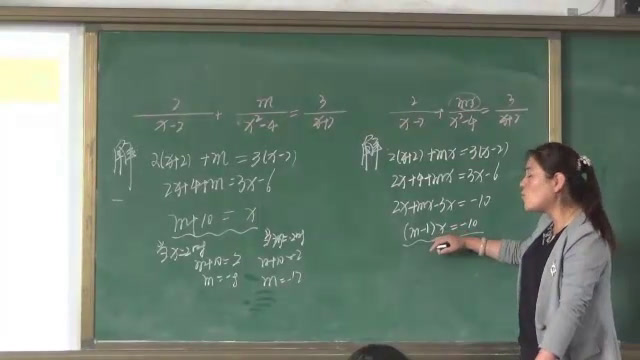 2/(x-2) + m/(x²-4) = 3/(x+2)
解 2(x+2)+m=3(x-2)
2x+4+m=3x-6
m+10=x
当x=2时
m+10=2
m=-8
m=-12
2/(x-2) + mx/(x²-4) = 3/(x+2)
解 2(x+2)+mx=3(x-2)
2x+4+mx=3x-6
2x+mx-3x=-10
(m-1)x=-10